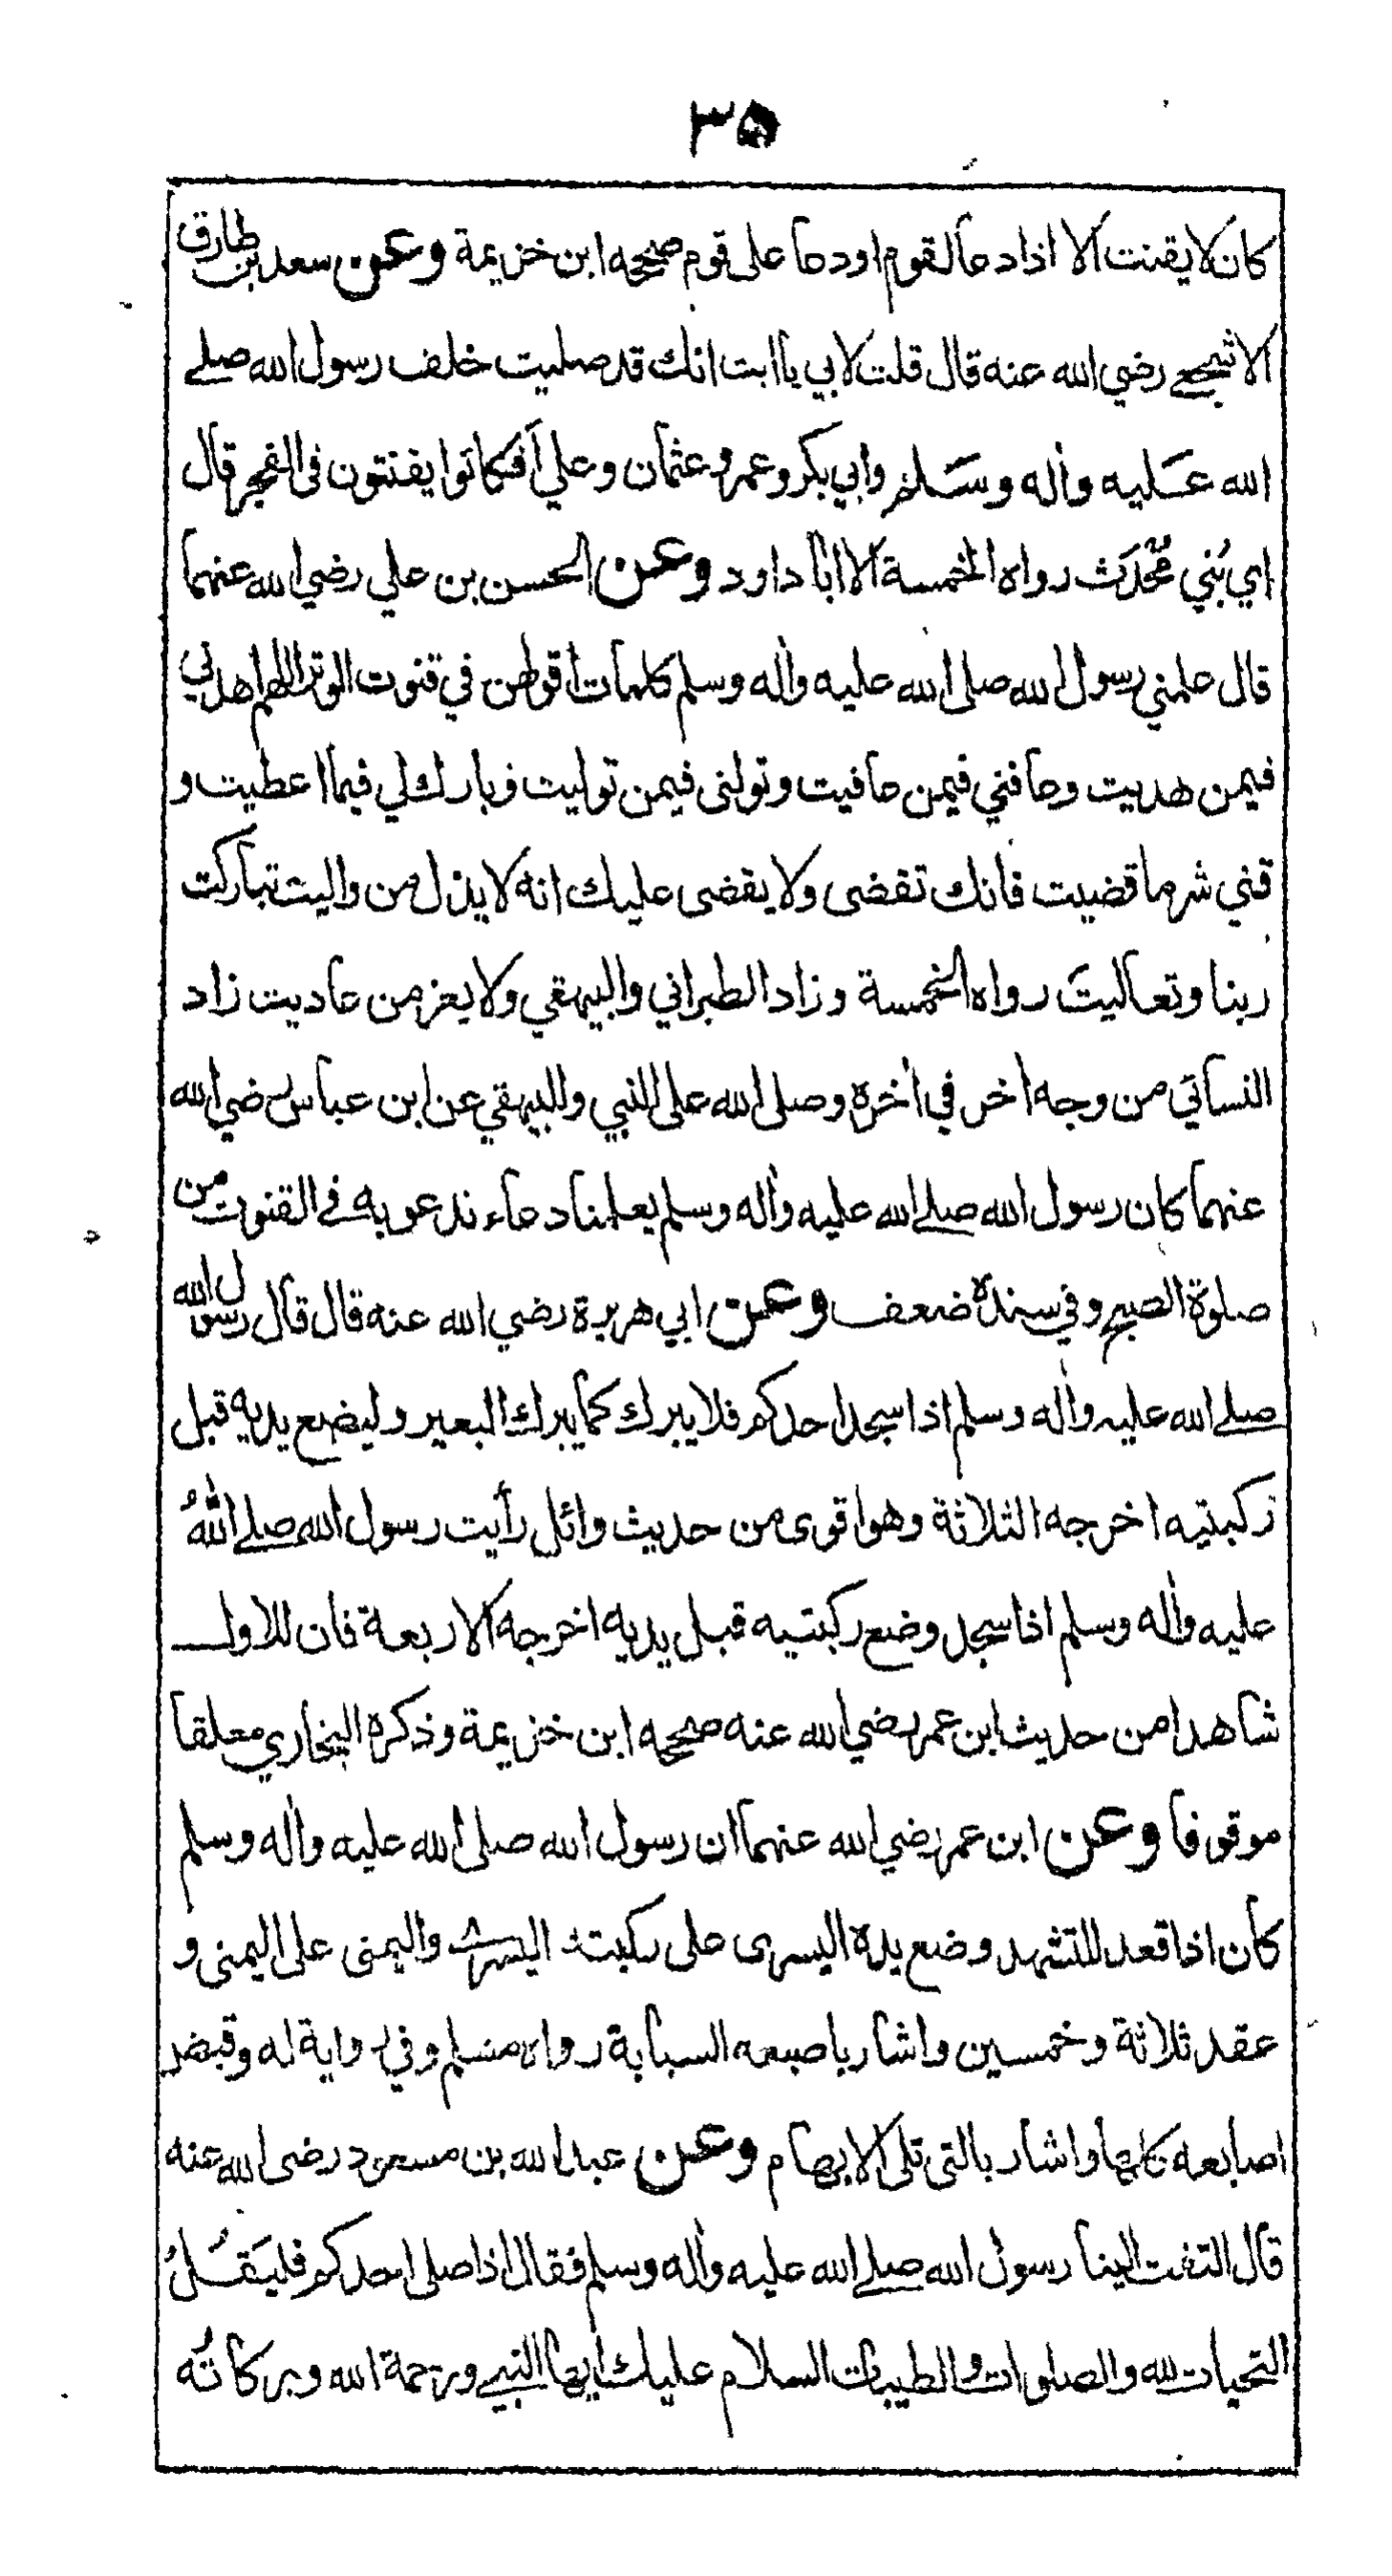 ٣٥
كان لا يقنت الا اذا دعا لقوم او دعا على قوم صححه ابن خزيمة وعن سعد بن طارق
الاشجعي رضي الله عنه قال قلت لابي يا ابت انك قد صليت خلف رسول الله صلے
الله عليه واٰله وسلم وابي بكر وعمر وعثمان وعلي أفكانوا يقنتون فى الفجر قال
اي بُني مُحْدَث رواه الخمسة الا ابا داود وعن الحسن بن علي رضي الله عنهما
قال علمني رسول الله صلى الله عليه واٰله وسلم كلمات اقولهن في قنوت الوتر اللهم اهدني
فيمن هديت وعافني فيمن عافيت وتولنى فيمن توليت وبارك لي فيما اعطيت و
قني شر ما قضيت فانك تقضى ولا يقضى عليك انه لا يذل من واليت تباركت
ربنا وتعاليتَ رواه الخمسة وزاد الطبراني والبيهقي ولا يعز من عاديت زاد
النسائي من وجه اٰخر في اٰخره وصلى الله على النبي والبيهقي عن ابن عباس رضي الله
عنهما كان رسول الله صلے الله عليه واٰله وسلم يعلمنا دعاء ندعو به فے القنوت من
صلوة الصبح وفي سنده ضعف وعن ابي هريرة رضي الله عنه قال قال رسول الله
صلے الله عليه واٰله وسلم اذا سجد احدكم فلا يبرك كما يبرك البعير وليضع يديه قبل
ركبتيه اخرجه الثلاثة وهو اقوى من حديث وائل رأيت رسول الله صلے اللهُ
عليه واٰله وسلم اذا سجد وضع ركبتيه قبل يديه اخرجه الاربعة فان للاول
شاهدا من حديث ابن عمر رضي الله عنه صححه ابن خزيمة وذكره البخاري معلقا
موقوفا وعن ابن عمر رضي الله عنهما ان رسول الله صلى الله عليه واٰله وسلم
كان اذا قعد للتشهد وضع يده اليسرى على ركبته اليسرے واليمنى على اليمنى و
عقد ثلاثة وخمسين واشار باصبعه السبابة رواه مسلم وفي رواية له وقبض
اصابعه كلها واشار بالتى تلى الابهام وعن عبد الله بن مسعود رضى الله عنه
قال التفت الينا رسول الله صلے الله عليه واٰله وسلم فقال اذا صلى احدكم فليَقُلُ
التحيات لله والصلوات والطيبات السلام عليك ايها النبي ورحمة الله وبركاتُه